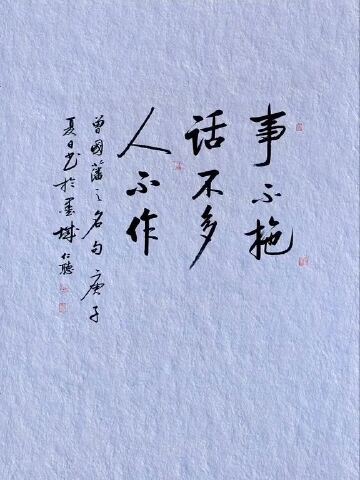 事不拖
话不多
人不作
曾國藩之名句庚子
夏日书於墨城仁聽